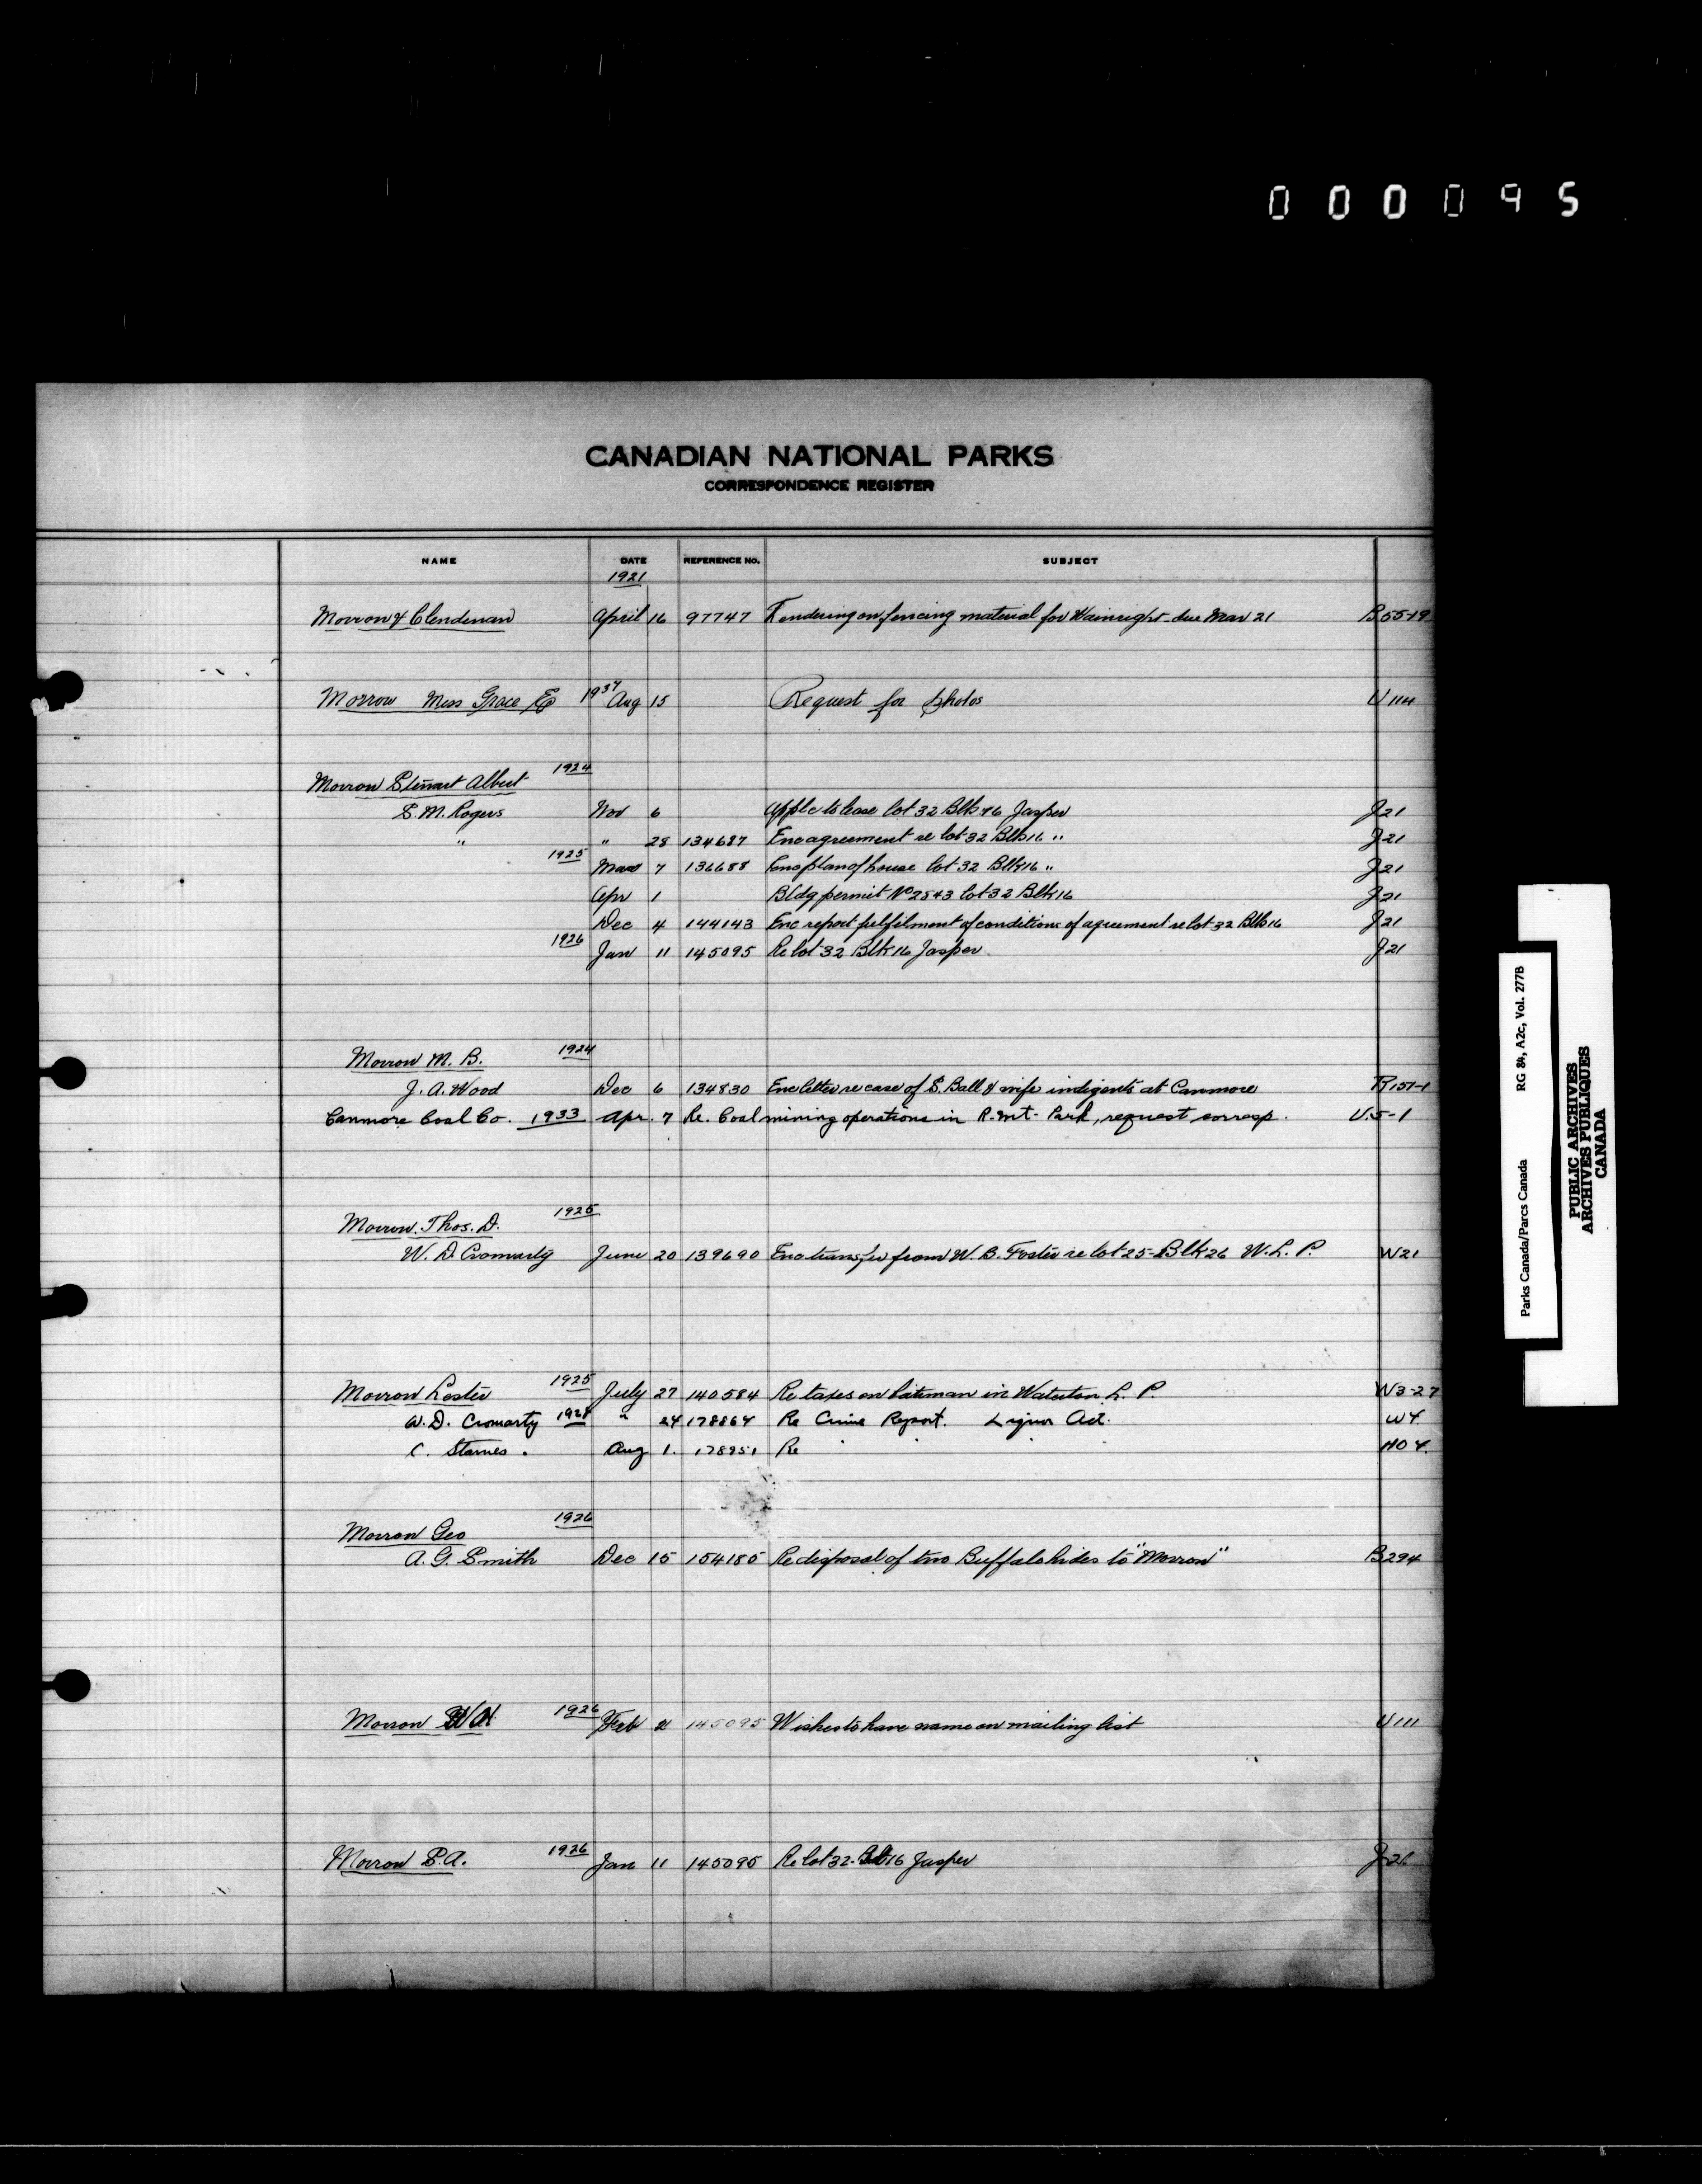 000095
CANADIAN NATIONAL PARKS
CORRESPONDENCE REGISTER
NAME DATE REFERENCE No. SUBJECT
1921
Morrow & Clendenan April 16 97747 Tendering on fencing material for Wainright - due Mar 21 B55-19
Morrow Miss Grace E 1937 Aug 15 Request for photos U114
Morrow Stewart Albert 1924
S. M. Rogers Nov 6 Applc to lease lot 32 Blk 16 Jasper J21
" " 28 134687 Enc agreement re lot 32 Blk 16 " J21
1925 Mar 7 136688 Enc plan of house lot 32 Blk 16 " J21
Apr 1 Bldg permit No 2843 lot 32 Blk 16 J21
Dec 4 144143 Enc report fulfilment of conditions of agreement re lot 32 Blk 16 J21
1926 Jan 11 145095 Re lot 32 Blk 16 Jasper J21
Morrow M. B. 1924
J. A. Wood Dec 6 134830 Enc letter re case of S. Ball & wife indigents at Canmore R151-1
Canmore Coal Co. 1933 Apr. 7 Re. Coal mining operations in R. Mt. Park, request corresp. U.5-1
Morrow. Thos. D. 1925
W. D. Cromarty June 20 139690 Enc transfer from W. B. Foster re lot 25 - Blk 26 W. L. P. W21
Morrow Lester 1925 July 27 140584 Re taxes on in Waterton L. P. W3-27
W. D. Cromarty 1928 " 24 178864 Re Crime Report. Liquor Act. W4.
C. Starnes. Aug 1. 178951 Re " " " HO4.
Morrow Geo 1926
A. G. Smith Dec 15 154185 Re disposal of two Buffalo hides to "Morrow" B294
Morrow W A 1926 Feb 2 145095 Wishes to have name on mailing list U111
Morrow S. A. 1926 Jan 11 145095 Re lot 32 - Blk 16 Jasper J21
Parks Canada/Parcs Canada RG 84, A2c, Vol. 277B
PUBLIC ARCHIVES
ARCHIVES PUBLIQUES
CANADA